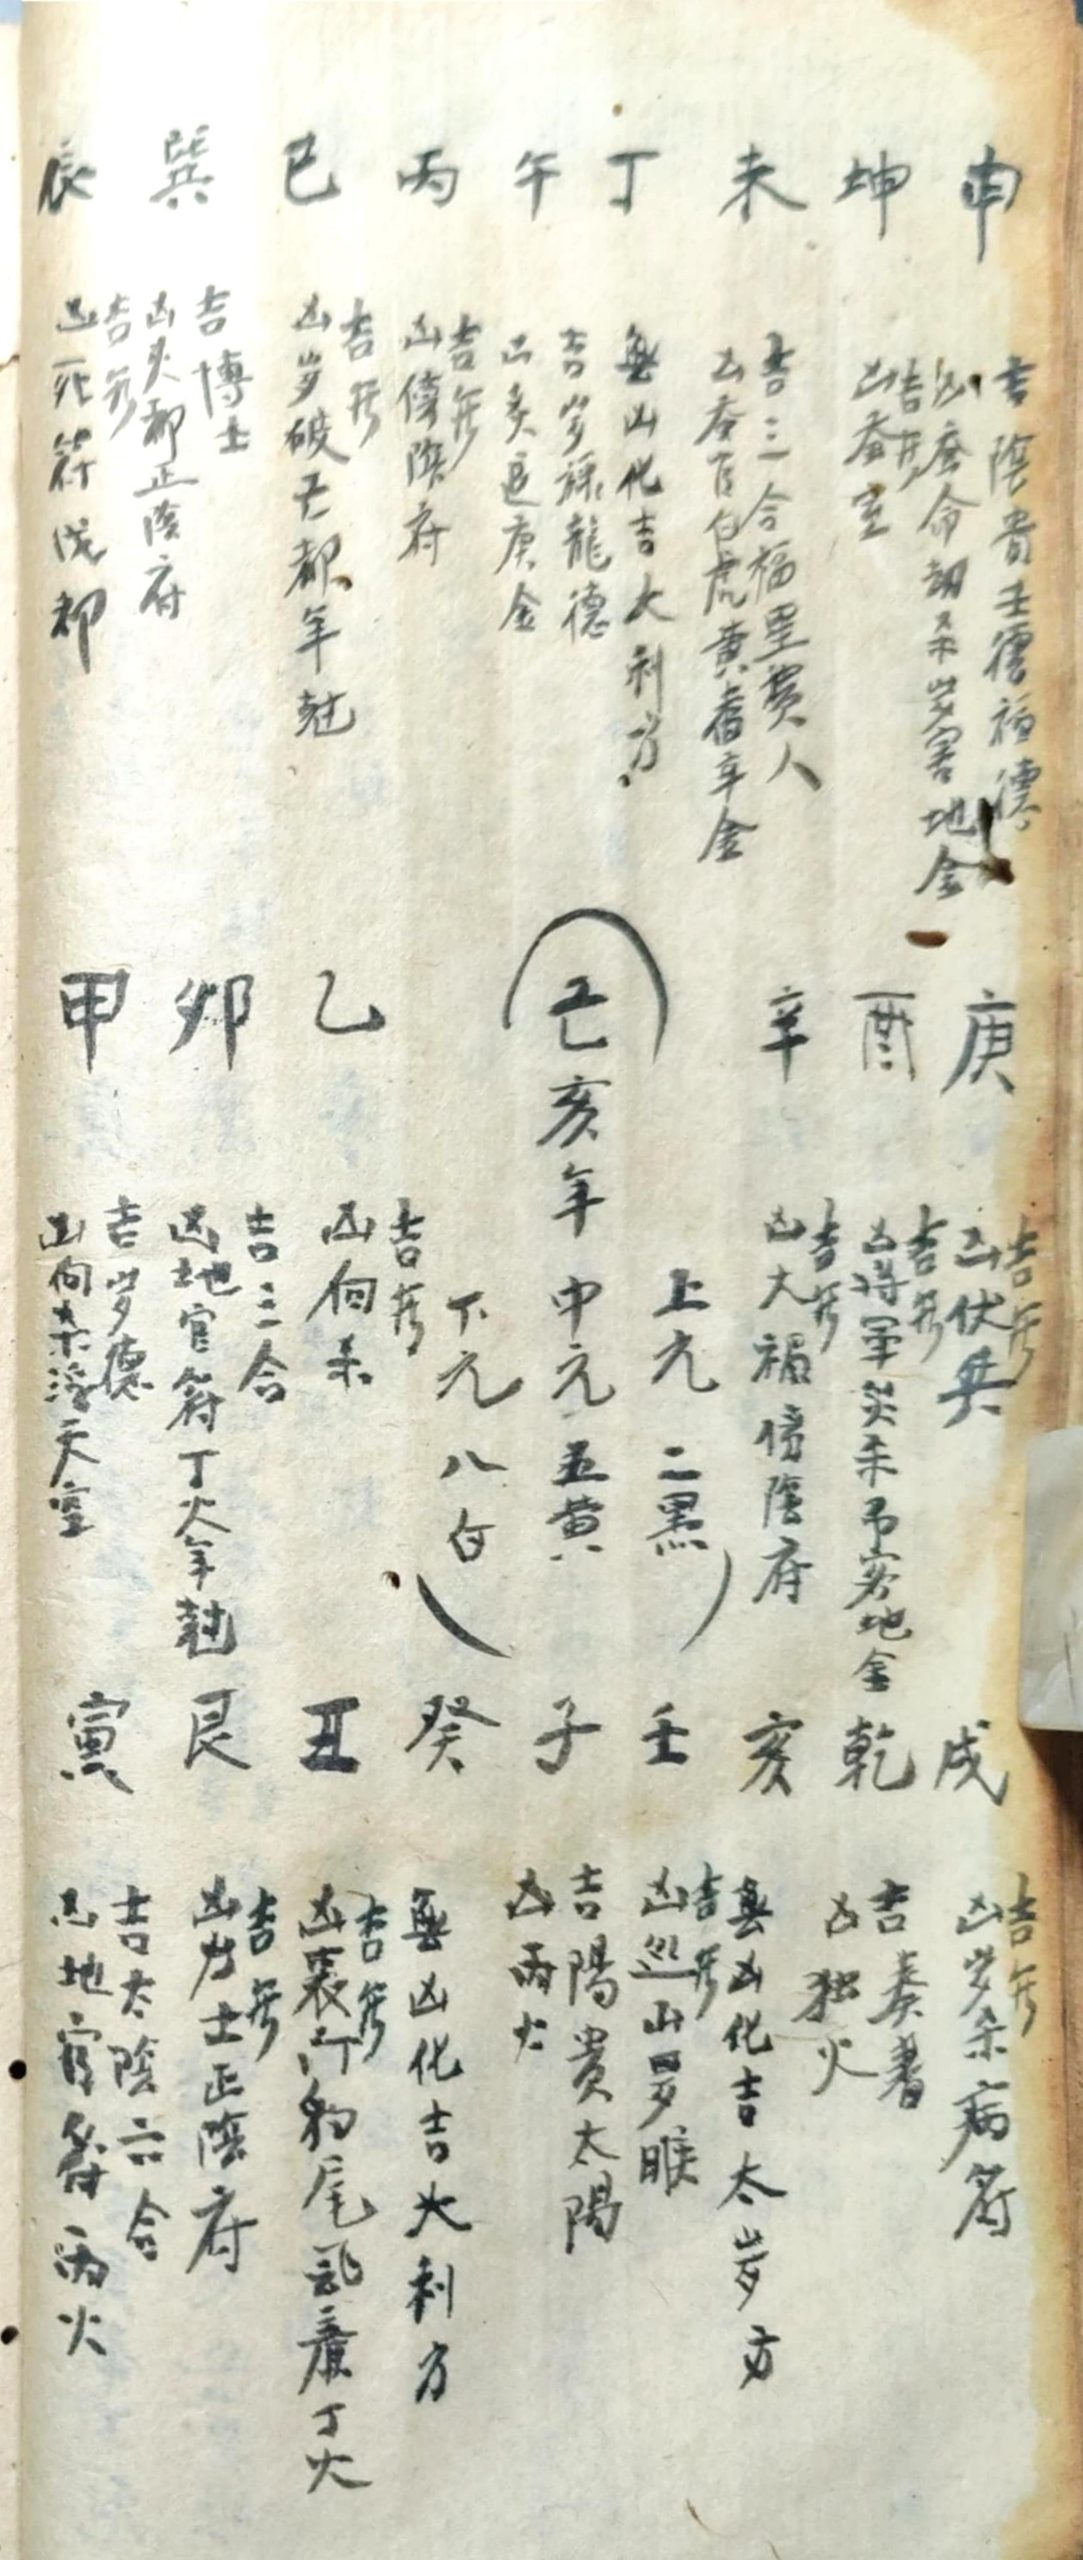 申
吉陰貴壬德福德
凶蚕命劫杀岁害地金
坤
吉无
凶蚕室
未
吉三合福星貴人
凶蚕官白虎黄番辛金
丁
無凶化吉大利方
午
吉岁禄龍德
凶炙退庚金
丙
吉无
凶傍陰府
巳
吉无
凶岁破天都年尅
巽
吉博士
凶炙都正陰府
辰
吉无
凶死符戊都
庚
吉无
凶伏兵
酉
吉无
凶将军灾杀吊客地金
辛
吉无
凶大禍傍陰府
上元 二黑
己亥年中元五黄
下元 八白
乙
吉无
凶向杀
卯
吉三合
凶地官符丁火年尅
甲
吉岁德
凶向杀浮天空
戌
吉无
凶岁杀病符
乾
吉奏書
凶独火
亥
無凶化吉太岁方
壬
吉无
凶巡山罗睺
子
吉陽貴太陽
凶丙火
癸
無凶化吉大利方
丑
吉无
凶喪门豹尾飛廉丁火
艮
吉无
凶力士正陰府
寅
吉太陰六合
凶地官符丙火